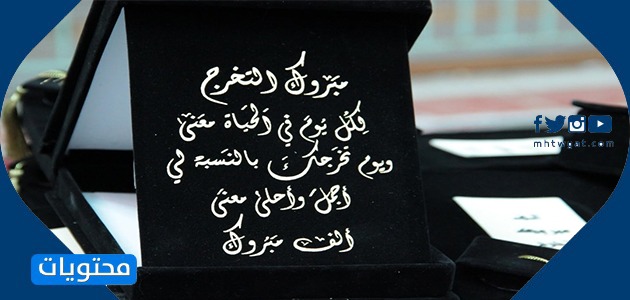 مبروك التخرج
لكل يوم في الحياة معنى
ويوم تخرجك بالنسبة لي
أجمل وأحلى معنى
ألف مبروك
mhtwyat.com
محتويات